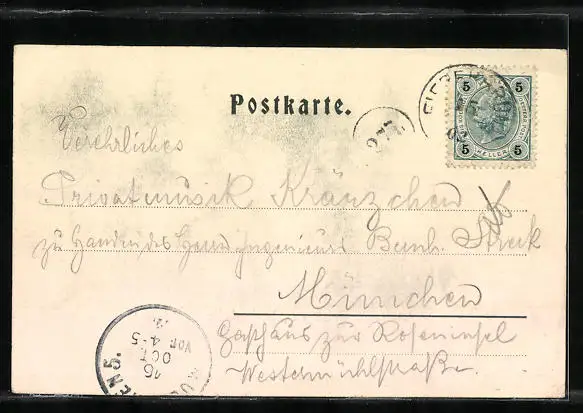 Postkarte.
5 5
5 HELLER 5
277.
20
Verehrliches
Privatmusik Kränzchen
zu Handen des Herrn Ingenieurs Bernh. Streck
München
Gasthaus zur Roseninsel
Westermühlstraße.
MÜNCHEN 5.
16
OCT
VOR 4-5